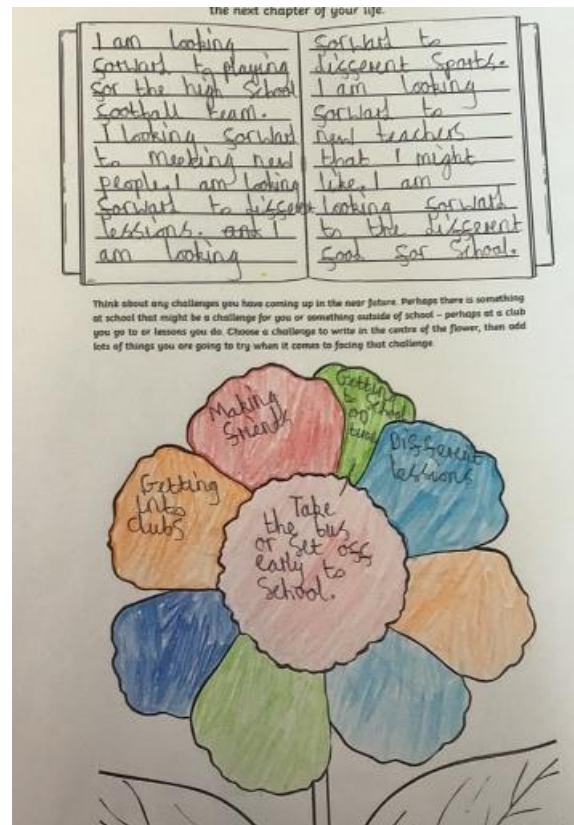 the next chapter of your life.
I am looking
forward to playing
for the high School
football team.
I looking forward
to meeting new
people. I am looking
forward to different
lessions. and I
am looking
forward to
different Sports.
I am looking
forward to
new teachers
that I might
like. I am
looking forward
to the different
food for School.
Think about any challenges you have coming up in the near future. Perhaps there is something
at school that might be a challenge for you or something outside of school – perhaps at a club
you go to or lessons you do. Choose a challenge to write in the centre of the flower, then add
lots of things you are going to try when it comes to facing that challenge.
Getting
to School
on
time
Making
friends
Different
lessions
Getting
into
clubs
Take
the bus
or set off
early to
School.